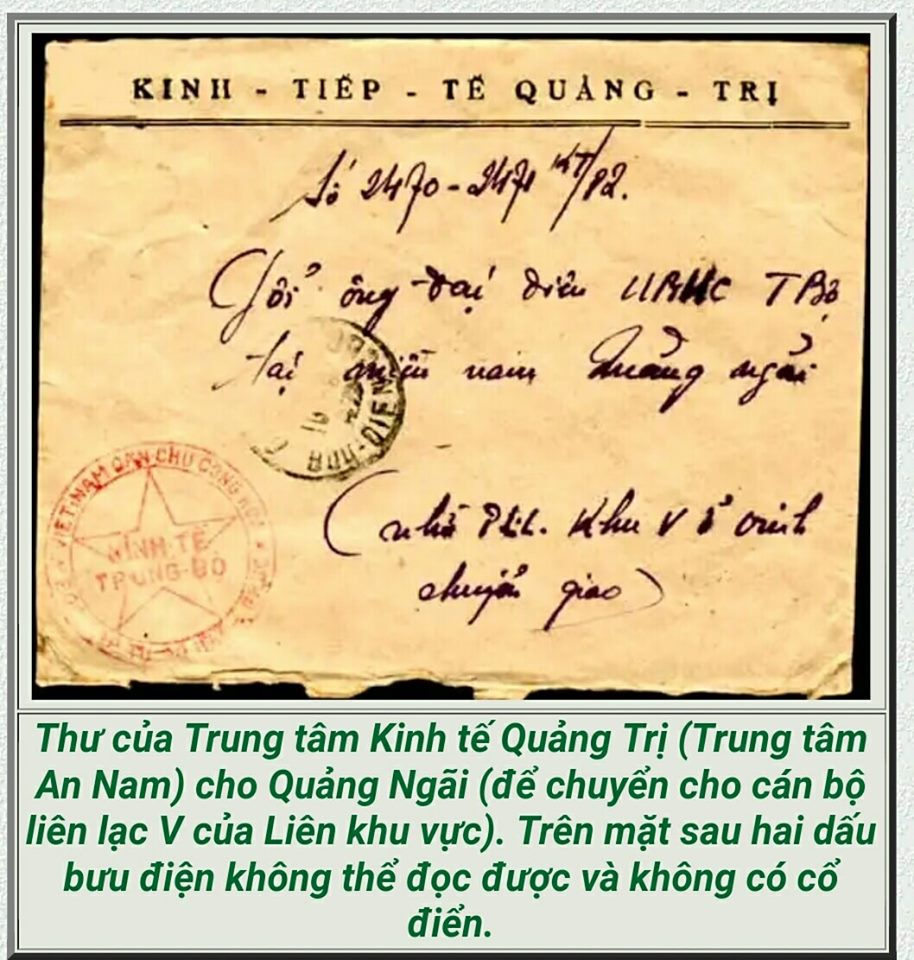 KINH - TIẾP - TẾ QUẢNG - TRỊ
Số 2470-2471 KT/P2.
Gởi ông đại diện UBHC TBộ
tại miền nam Quảng ngãi
BƯU-ĐIỆN
VIỆT-NAM DÂN CHỦ CỘNG HÒA
KINH TẾ
TRUNG-BỘ
(nhờ Khu V ở
chuyển giao)
Thư của Trung tâm Kinh tế Quảng Trị (Trung tâm
An Nam) cho Quảng Ngãi (để chuyển cho cán bộ
liên lạc V của Liên khu vực). Trên mặt sau hai dấu
bưu điện không thể đọc được và không có cổ
điển.